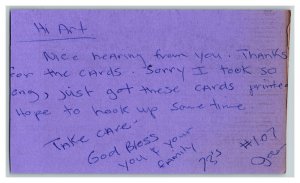 Hi Art
Nice hearing from you. Thanks
for the cards. Sorry I took so
ong, just got these cards printe
Hope to hook up some time.
Take care.
God Bless
you & your
family
73's
#107